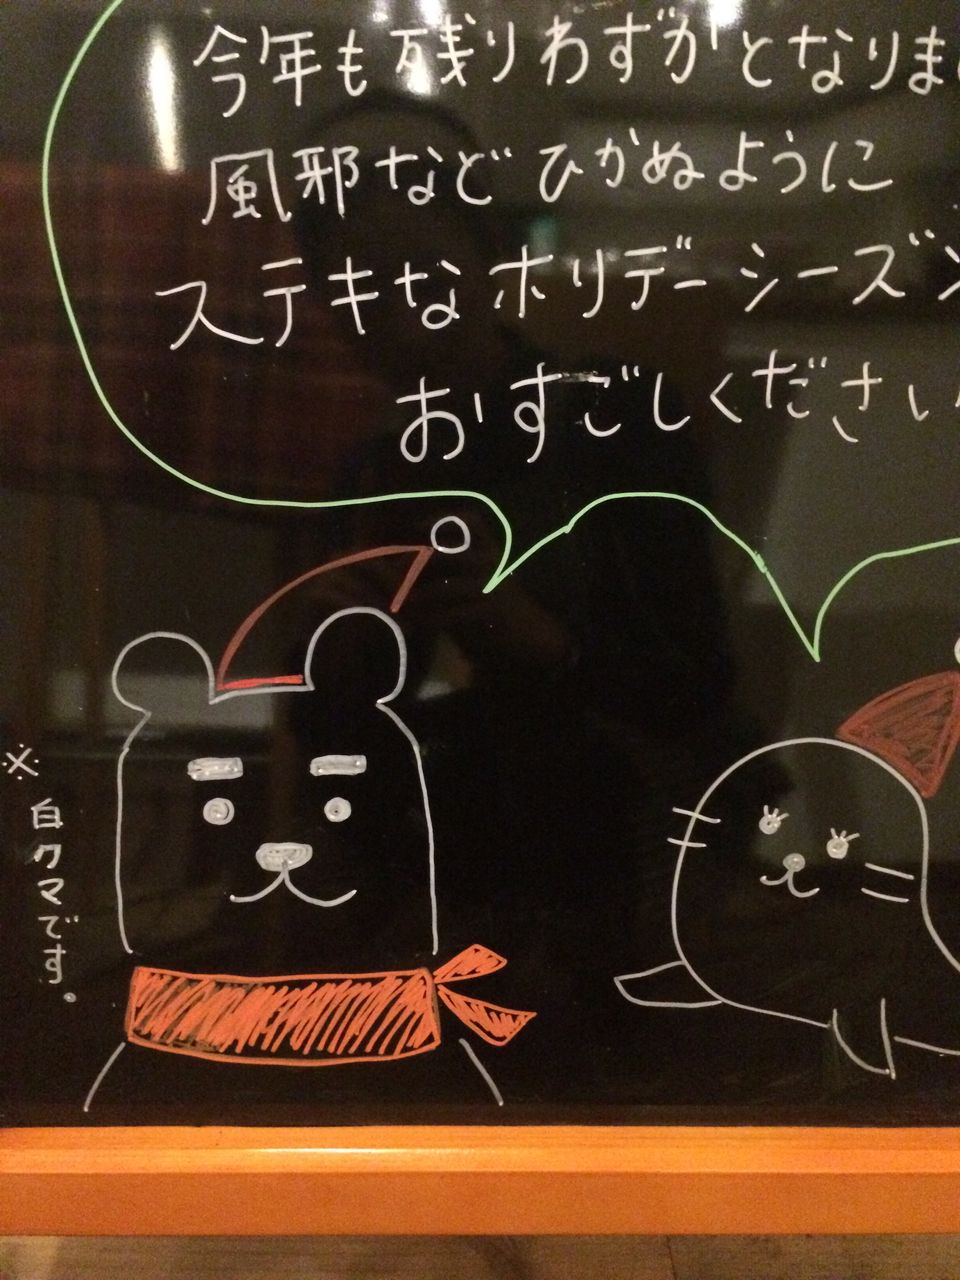 今年も残りわずかとなりま
風邪などひかぬように
ステキなホリデーシーズン
おすごしください
※白クマです。